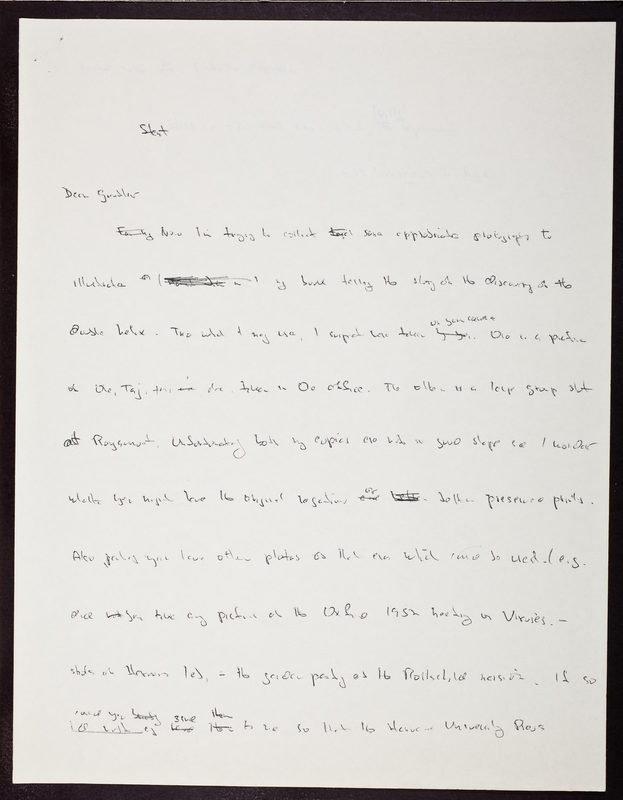 Stent
Dear Gunther
Now I'm trying to collect some appropriate photographs to
illustrate my book telling the story of the discovery of the
double helix. Two which I may use, I suspect were taken
on your camera
One is a picture
of Ole, Taj, me taken in Ole office. The other is a large group shot
at Royaumont. Unfortunately both my copies are not in good shape and I wonder
whether you might have the original negatives or better preserved prints.
Also perhaps you have other photos of that era which could be used (e.g.
did you take any picture at the Oxford 1952 meeting on Viruses. -
the garden party at the Rothschild mansion. If so
could you give them to me so that the Harvard University Press